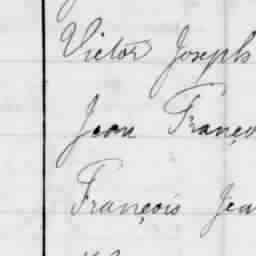 Victor Joseph
Jean Franço
François Jea